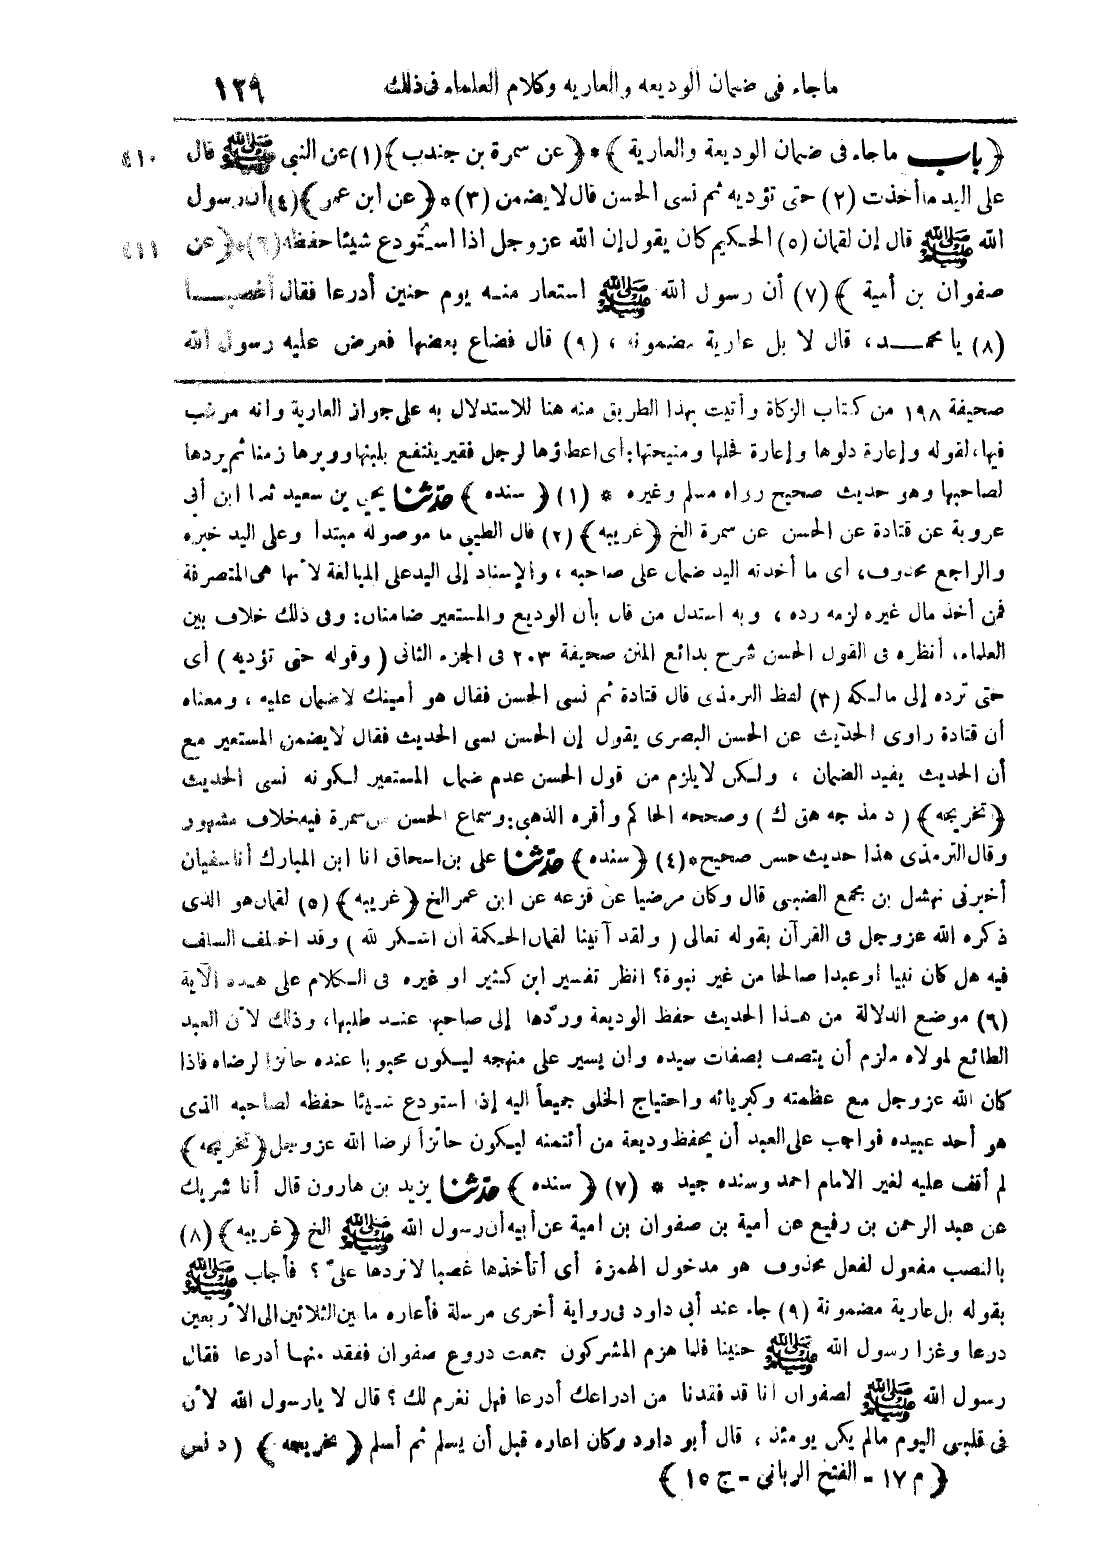 ماجاء فى ضمان الوديعه والعاريه وكلام العلماء فى ذلك ١٢٩
﴿ باب ماجاء فى ضمان الوديعة والعارية ﴾ * ﴿ عن سمرة بن جندب ﴾ (١) عن النبى ﷺ قال ٤١٠
على اليد ما أخذت (٢) حتى تؤديه ثم نسى الحسن قال لا يضمن (٣) * ﴿ عن ابن عمر ﴾ (٤) أن رسول
الله ﷺ قال إن لقمان (٥) الحكيم كان يقول إن الله عز وجل اذا استُودع شيئا حفظه (٦) * ﴿ عن ٤١١
صفوان بن أمية ﴾ (٧) أن رسول الله ﷺ استعار منه يوم حنين أدرعا فقال أغصبا
(٨) يا محمد ، قال لا بل عارية مضمونة ، (٩) قال فضاع بعضها فعرض عليه رسول الله
صحيفة ١٩٨ من كتاب الزكاة وأتيت بهذا الطريق منه هنا للاستدلال به على جواز العارية وانه مرغب
فيها ، لقوله وإعارة دلوها وإعارة فحلها ومنيحتها : أى اعطاؤها لرجل فقير ينتفع بلبنها ووبرها زمنا ثم يردها
لصاحبها وهو حديث صحيح رواه مسلم وغيره * (١) ﴿ سنده ﴾ حدّثنا يحيى بن سعيد ثنا ابن أبى
عروبة عن قتادة عن الحسن عن سمرة الخ ﴿ غريبه ﴾ (٢) قال الطيبى ما موصوله مبتدأ وعلى اليد خبره
والراجع محذوف ، أى ما أخذته اليد ضمان على صاحبه ، والإسناد إلى اليد على المبالغة لأنها هى المتصرفة
فمن أخذ مال غيره لزمه رده ، وبه استدل من قال بأن الوديع والمستعير ضامنان : وفى ذلك خلاف بين
العلماء ، أنظره فى القول الحسن شرح بدائع المنن صحيفة ٢٠٣ فى الجزء الثانى ( وقوله حتى تؤديه ) أى
حتى ترده إلى مالكه (٣) لفظ الترمذى قال قتادة ثم نسى الحسن فقال هو أمينك لا ضمان عليه ، ومعناه
أن قتادة راوى الحديث عن الحسن البصرى يقول إن الحسن نسى الحديث فقال لا يضمن المستعير مع
أن الحديث يفيد الضمان ، ولكن لا يلزم من قول الحسن عدم ضمان المستعير لكونه نسى الحديث
﴿ تخريجه ﴾ ( د مذ جه هق ك ) وصححه الحاكم وأقره الذهبى : وسماع الحسن من سمرة فيه خلاف مشهور
وقال الترمذى هذا حديث حسن صحيح * (٤) ﴿ سنده ﴾ حدّثنا على بن اسحاق انا ابن المبارك أنا سفيان
أخبرنى نهشل بن مجمع الضبى قال وكان مرضيا عن قزعه عن ابن عمر الخ ﴿ غريبه ﴾ (٥) لقمان هو الذى
ذكره الله عز وجل فى القرآن بقوله تعالى ( ولقد آتينا لقمان الحكمة أن اشكر لله ) وقد اختلف السلف
فيه هل كان نبيا او عبدا صالحا من غير نبوة ؟ انظر تفسير ابن كثير او غيره فى الكلام على هذه الآية
(٦) موضع الدلالة من هذا الحديث حفظ الوديعة وردّها إلى صاحبها عند طلبها ، وذلك لأن العبد
الطائع لمولاه ملزم أن يتصف بصفات سيده وان يسير على منهجه ليكون محبوبا عنده حائزا لرضاه فاذا
كان الله عز وجل مع عظمته وكبريائه واحتياج الخلق جميعاً اليه إذا استودع شيئا حفظه لصاحبه الذى
هو أحد عبيده فواجب على العبد أن يحفظ وديعة من أئتمنه ليكون حائزاً لرضا الله عز وجل ﴿ تخريجه ﴾
لم أقف عليه لغير الامام احمد وسنده جيد * (٧) ﴿ سنده ﴾ حدّثنا يزيد بن هارون قال أنا شريك
عن عبد الرحمن بن رفيع عن أمية بن صفوان بن امية عن أبيه أن رسول الله ﷺ الخ ﴿ غريبه ﴾ (٨)
بالنصب مفعول لفعل محذوف هو مدخول الهمزة أى أتأخذها غصبا لا تردها علىّ ؟ فأجاب ﷺ
بقوله بل عارية مضمونة (٩) جاء عند أبى داود فى رواية أخرى مرسلة فأعاره ما بين الثلاثين الى الأربعين
درعا وغزا رسول الله ﷺ حنينا فلما هزم المشركون جمعت دروع صفوان ففقد منها أدرعا فقال
رسول الله ﷺ لصفوان انا قد فقدنا من ادراعك أدرعا فهل نغرم لك ؟ قال لا يارسول الله لأن
فى قلبى اليوم مالم يكن يومئذ ، قال أبو داود وكان اعاره قبل أن يسلم ثم أسلم ﴿ تخريجه ﴾ ( د نس
﴿ م ١٧ - الفتح الربانى - ج ١٥ ﴾